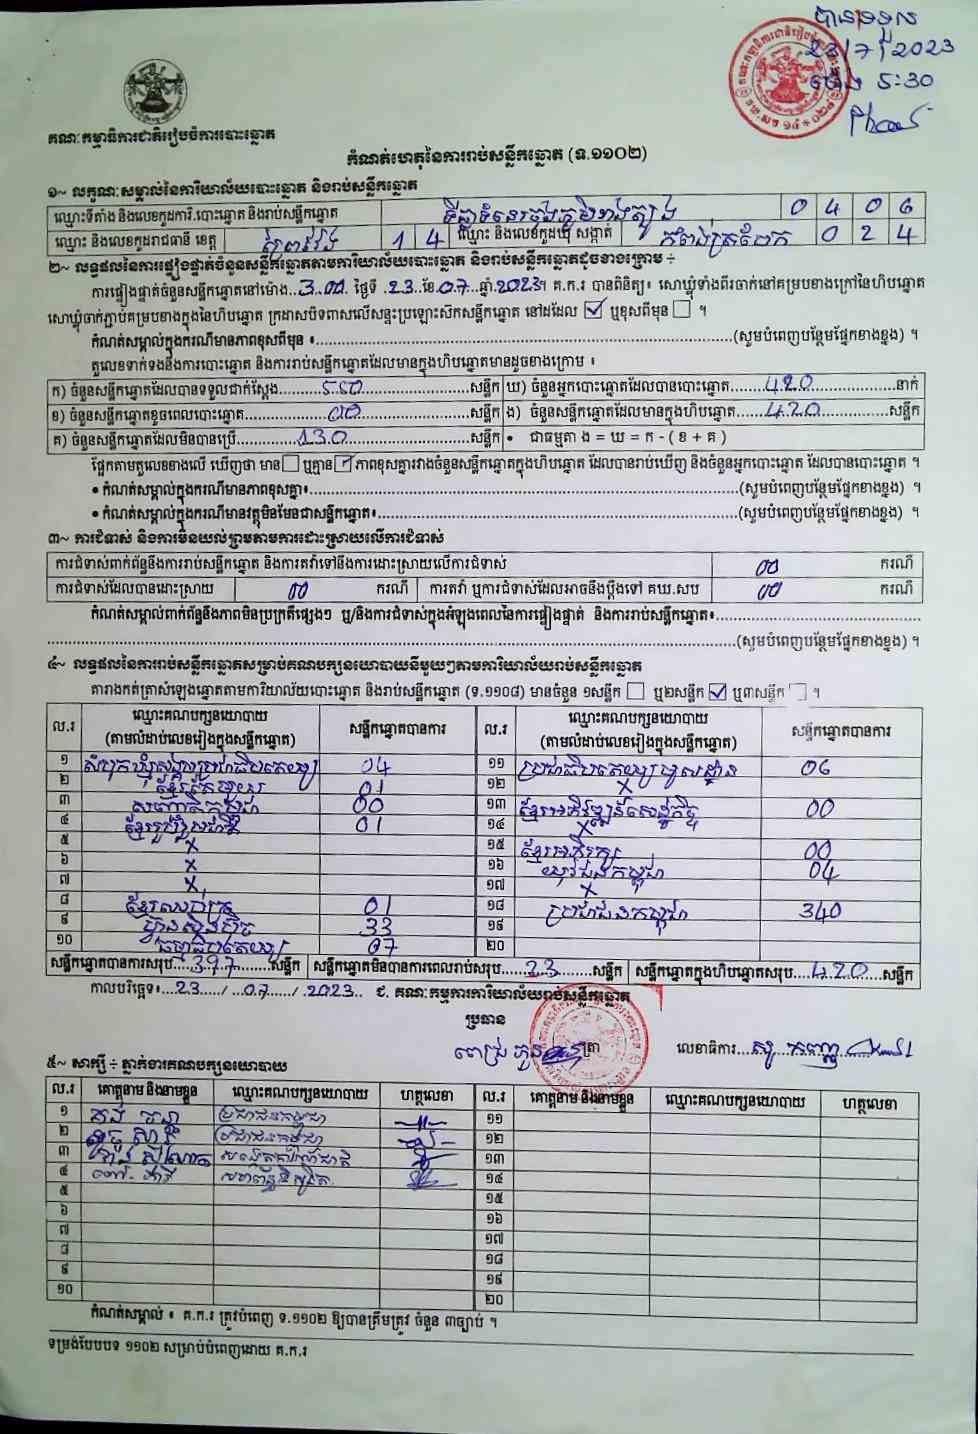 បានទទួល
23/7/2023
ម៉ោង 5:30
គណៈកម្មាធិការជាតិរៀបចំការបោះឆ្នោត
កំណត់ហេតុនៃការរាប់សន្លឹកឆ្នោត (ទ.១១០២)
១~ លក្ខណៈសម្គាល់នៃការិយាល័យបោះឆ្នោត និងរាប់សន្លឹកឆ្នោត
ឈ្មោះទីតាំង និងលេខកូដការិ.បោះឆ្នោត និងរាប់សន្លឹកឆ្នោត 0 4 0 6
ឈ្មោះ និងលេខកូដរាជធានី ខេត្ត ព្រៃវែង 1 4 ឈ្មោះ និងលេខកូដឃុំ សង្កាត់ កំពង់ត្របែក 0 2 4
២~ លទ្ធផលនៃការផ្ទៀងផ្ទាត់ចំនួនសន្លឹកឆ្នោតតាមការិយាល័យបោះឆ្នោត និងរាប់សន្លឹកឆ្នោតដូចខាងក្រោម ÷
ការផ្ទៀងផ្ទាត់ចំនួនសន្លឹកឆ្នោតនៅម៉ោង..3.00. ថ្ងៃទី .23.ខែ.07..ឆ្នាំ.2023។ គ.ក.រ បានពិនិត្យ៖ សោឃ្លុំទាំងពីរចាក់នៅគម្របខាងក្រៅនៃហិបឆ្នោត
សោឃ្លុំចាក់ភ្ជាប់គម្របខាងក្នុងនៃហិបឆ្នោត ក្រដាសបិទពាសលើសន្ទះប្រឡោះស៊កសន្លឹកឆ្នោត នៅដដែល ☑ ឬខុសពីមុន ☐ ។
កំណត់សម្គាល់ក្នុងករណីមានភាពខុសពីមុន ៖ (សូមបំពេញបន្ថែមផ្នែកខាងខ្នង) ។
តួលេខទាក់ទងនឹងការបោះឆ្នោត និងការរាប់សន្លឹកឆ្នោតដែលមានក្នុងហិបឆ្នោតមានដូចខាងក្រោម ៖
ក) ចំនួនសន្លឹកឆ្នោតដែលបានទទួលជាក់ស្តែង 550 សន្លឹក ឃ) ចំនួនអ្នកបោះឆ្នោតដែលបានបោះឆ្នោត 420 នាក់
ខ) ចំនួនសន្លឹកឆ្នោតខូចពេលបោះឆ្នោត 00 សន្លឹក ង) ចំនួនសន្លឹកឆ្នោតដែលមានក្នុងហិបឆ្នោត 420 សន្លឹក
គ) ចំនួនសន្លឹកឆ្នោតដែលមិនបានប្រើ 130 សន្លឹក • ជាធម្មតា ង = ឃ = ក - ( ខ + គ )
ផ្អែកតាមតួលេខខាងលើ ឃើញថា មាន ☐ ឬគ្មាន ☑ ភាពខុសគ្នារវាងចំនួនសន្លឹកឆ្នោតក្នុងហិបឆ្នោត ដែលបានរាប់ឃើញ និងចំនួនអ្នកបោះឆ្នោត ដែលបានបោះឆ្នោត ។
• កំណត់សម្គាល់ក្នុងករណីមានភាពខុសគ្នា៖ (សូមបំពេញបន្ថែមផ្នែកខាងខ្នង) ។
• កំណត់សម្គាល់ក្នុងករណីមានវត្ថុមិនមែនជាសន្លឹកឆ្នោត៖ (សូមបំពេញបន្ថែមផ្នែកខាងខ្នង) ។
៣~ ការជំទាស់ និងការមិនយល់ព្រមតាមការដោះស្រាយលើការជំទាស់
ការជំទាស់ពាក់ព័ន្ធនឹងការរាប់សន្លឹកឆ្នោត និងការតវ៉ាទៅនឹងការដោះស្រាយលើការជំទាស់ 00 ករណី
ការជំទាស់ដែលបានដោះស្រាយ 00 ករណី ការតវ៉ា ឬការជំទាស់ដែលអាចនឹងប្តឹងទៅ គឃ.សប 00 ករណី
កំណត់សម្គាល់ពាក់ព័ន្ធនឹងភាពមិនប្រក្រតីផ្សេងៗ ឬ/និងការជំទាស់ក្នុងអំឡុងពេលនៃការផ្ទៀងផ្ទាត់ និងការរាប់សន្លឹកឆ្នោត៖
(សូមបំពេញបន្ថែមផ្នែកខាងខ្នង) ។
៤~ លទ្ធផលនៃការរាប់សន្លឹកឆ្នោតសម្រាប់គណបក្សនយោបាយនីមួយៗតាមការិយាល័យរាប់សន្លឹកឆ្នោត
តារាងកត់ត្រាសំឡេងឆ្នោតតាមការិយាល័យបោះឆ្នោត និងរាប់សន្លឹកឆ្នោត (ទ.១១០៨) មានចំនួន ១សន្លឹក ☐ ឬ២សន្លឹក ☑ ឬ៣សន្លឹក ☐ ។
ល.រ ឈ្មោះគណបក្សនយោបាយ (តាមលំដាប់លេខរៀងក្នុងសន្លឹកឆ្នោត) សន្លឹកឆ្នោតបានការ ល.រ ឈ្មោះគណបក្សនយោបាយ (តាមលំដាប់លេខរៀងក្នុងសន្លឹកឆ្នោត) សន្លឹកឆ្នោតបានការ
១ សំបុកឃ្មុំសង្គមប្រជាធិបតេយ្យ 04 ១១ ប្រជាធិបតេយ្យមូលដ្ឋាន 06
២ ខ្មែរតែមួយ 01 ១២ x
៣ សញ្ជាតិកម្ពុជា 00 ១៣ ខ្មែរអភិវឌ្ឍន៍សេដ្ឋកិច្ច 00
៤ ខ្មែររួបរួមជាតិ 01 ១៤ x
៥ x ១៥ ខ្មែរអភិរក្ស 00
៦ x ១៦ យុវជនកម្ពុជា 04
៧ x ១៧ x
៨ ខ្មែរឈប់ក្រ 01 ១៨ ប្រជាជនកម្ពុជា 340
៩ ហ៊្វុនស៊ិនប៉ិច 33 ១៩
១០ ធម្មាធិបតេយ្យ 07 ២០
សន្លឹកឆ្នោតបានការសរុប 397 សន្លឹក សន្លឹកឆ្នោតមិនបានការពេលរាប់សរុប 23 សន្លឹក សន្លឹកឆ្នោតក្នុងហិបឆ្នោតសរុប 420 សន្លឹក
កាលបរិច្ឆេទ៖ 23 / 07 / 2023 ជ. គណៈកម្មការការិយាល័យរាប់សន្លឹកឆ្នោត
ប្រធាន
ត្រា លេខាធិការ
៥~ សាក្សី ÷ ភ្នាក់ងារគណបក្សនយោបាយ
ល.រ គោត្តនាម និងនាមខ្លួន ឈ្មោះគណបក្សនយោបាយ ហត្ថលេខា ល.រ គោត្តនាម និងនាមខ្លួន ឈ្មោះគណបក្សនយោបាយ ហត្ថលេខា
១ ប្រជាជនកម្ពុជា ១១
២ ប្រជាជនកម្ពុជា ១២
៣ ១៣
៤ ១៤
៥ ១៥
៦ ១៦
៧ ១៧
៨ ១៨
៩ ១៩
១០ ២០
កំណត់សម្គាល់ ៖ គ.ក.រ ត្រូវបំពេញ ទ.១១០២ ឱ្យបានត្រឹមត្រូវ ចំនួន ៣ច្បាប់ ។
ទម្រង់បែបបទ ១១០២ សម្រាប់បំពេញដោយ គ.ក.រ